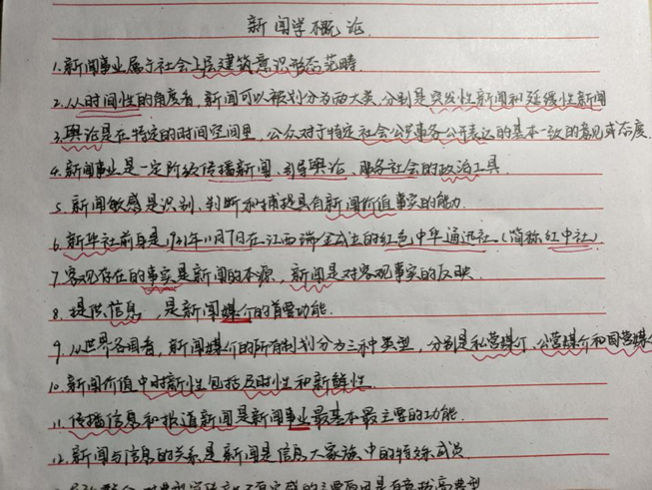 新闻学概论.
1.新闻事业属于社会上层建筑意识形态范畴.
2.从时间性的角度看,新闻可以被划分为两大类,分别是突发性新闻和延缓性新闻
3.舆论是在特定的时间空间里,公众对于特定社会公共事务公开表达的基本一致的意见或态度.
4.新闻事业是一定阶级传播新闻、引导舆论、服务社会的政治工具.
5.新闻敏感是识别、判断和捕捉具有新闻价值事实的能力.
6.新华社前身是1931年11月7日在江西瑞金成立的红色中华通讯社.(简称红中社)
7.客观存在的事实是新闻的本源,新闻是对客观事实的反映.
8.提供信息,是新闻媒介的首要功能.
9.从世界各国看,新闻媒介的所有制划分为三种类型,分别是私营媒介、公营媒介和国营媒介
10.新闻价值中时新性包括及时性和新鲜性.
11.传播信息和报道新闻是新闻事业最基本最主要的功能.
12.新闻与信息的关系是新闻是信息大家族中的特殊成员